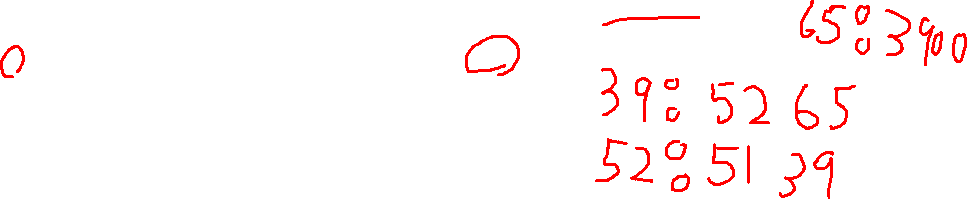 65:3900
39:52 65
52:51 39